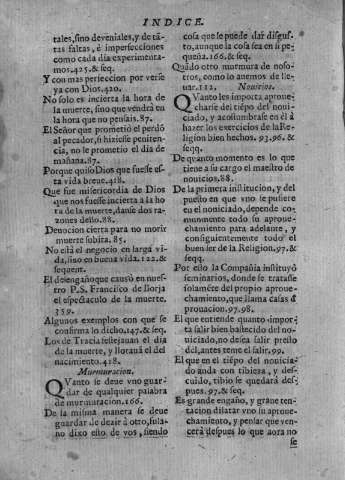 INDICE.
tales, sino deveniales, y de tā-
tas faltas, è imperfecciones
como cada dia experimenta-
mos. 425. & seq.
Y con mas perfeccion por verse
ya con Dios. 420.
No solo es incierta la hora de
la muerte, sino que vendrà en
la hora que no pensais. 87.
El Señor que prometiò el perdō
al pecador, si hiziesse peniten-
cia, no le prometio el dia de
mañana. 87.
Porque quiso Dios que fuesse es-
ta vida breve. 418.
Que fue misericordia de Dios
que nos fuesse incierta a la ho-
ra de la muerte, danse dos ra-
zones desto. 88.
Devocion cierta para no morir
muerte subita. 85.
No està el negocio en larga vi-
da, sino en buena vida. 122. &
sequent.
El desengaño que causò en nuestro
P. S. Francisco de Borja
el espectaculo de la muerte.
359.
Algunos exemplos con que se
confirma lo dicho. 147. & seq.
Los de Tracia festejauan el dia
de la muerte, y llorauā el del
nacimiento. 418.
Murmuracion.
QVanto se deue vno guar-
dar de qualquier palabra
de murmuracion. 166.
De la misma manera se deue
guardar de dezir à otro, fula-
no dixo esto de vos, siendo
cosa que le puede dar disgus-
to, aunque la cosa sea en si pe-
queña. 166. & seq.
Quādo otro murmura de noso-
tros, como lo auemos de lle-
uar. 112.
Novicios.
QVanto les importa aprove-
charse del tiēpo del novi-
ciado, y acostumbrase en èl à
hazer los exercicios de la Re-
ligion bien hechos. 93. 96. &
seqq.
De quanto momento es lo que
tiene a su cargo el maestro de
novicios. 88.
De la primera institucion, y del
puesto en que vno se pusiere
en el noviciado, depende co-
munmente todo su aprove-
chamiento para adelante, y
consiguientemente todo el
buen ser de la Religion. 97. &
seqq.
Por esso la Compañia instituyò
seminarios, donde se tratasse
solamēte del propio aprove-
chamiento, que llama casas d̄
prouacion. 97. 98.
El que entiende quanto impor-
ta salir bien bastecido del no-
viciado, no desea salir presto
del, antes teme el salir. 99.
El que en el tiēpo del novicia-
do anda con tibieza, y des-
cuido, tibio se quedarà des-
pues. 97. & seq.
Es grande engaño, y graue ten-
tacion dilatar vno su aprove-
chamiento, y pensar que ven-
cerà despues lo que aora no
se